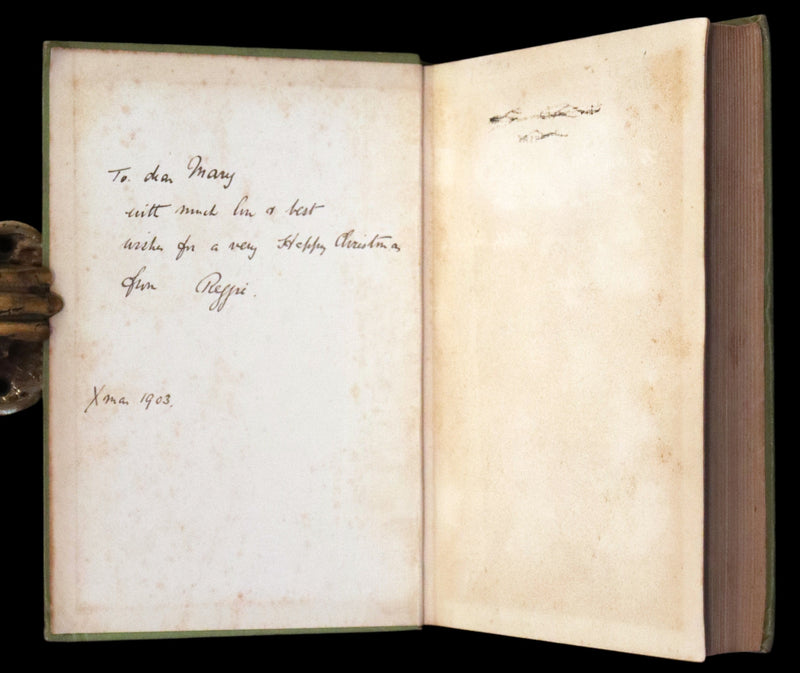 To dear Mary
with much love & best
wishes for a very Happy Christmas
from Reggie.
Xmas 1903.